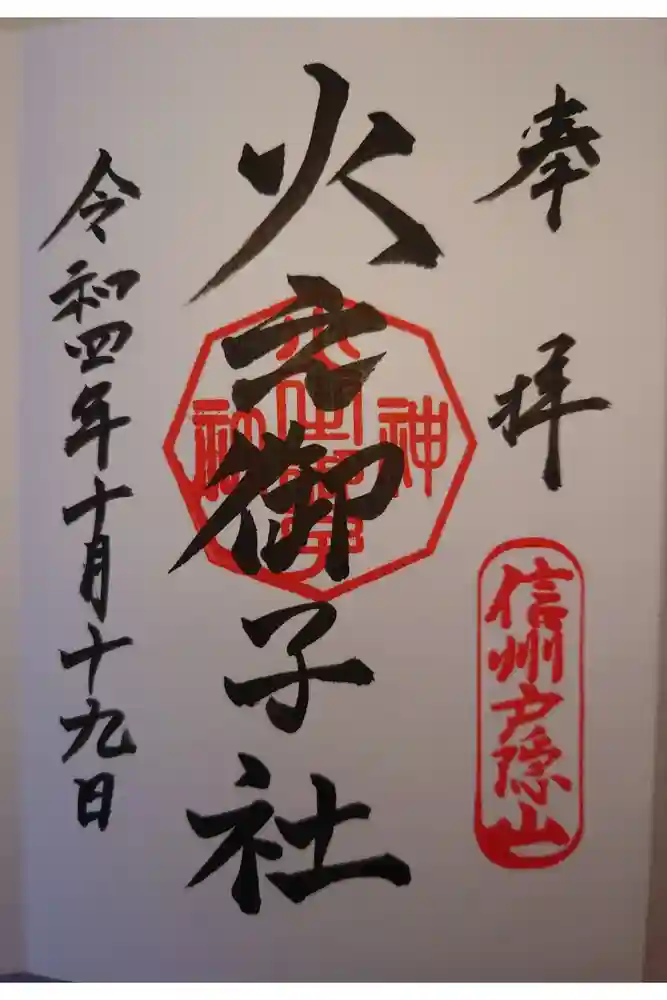 奉拝
信州戸隠山
火之御子社
令和四年十月十九日